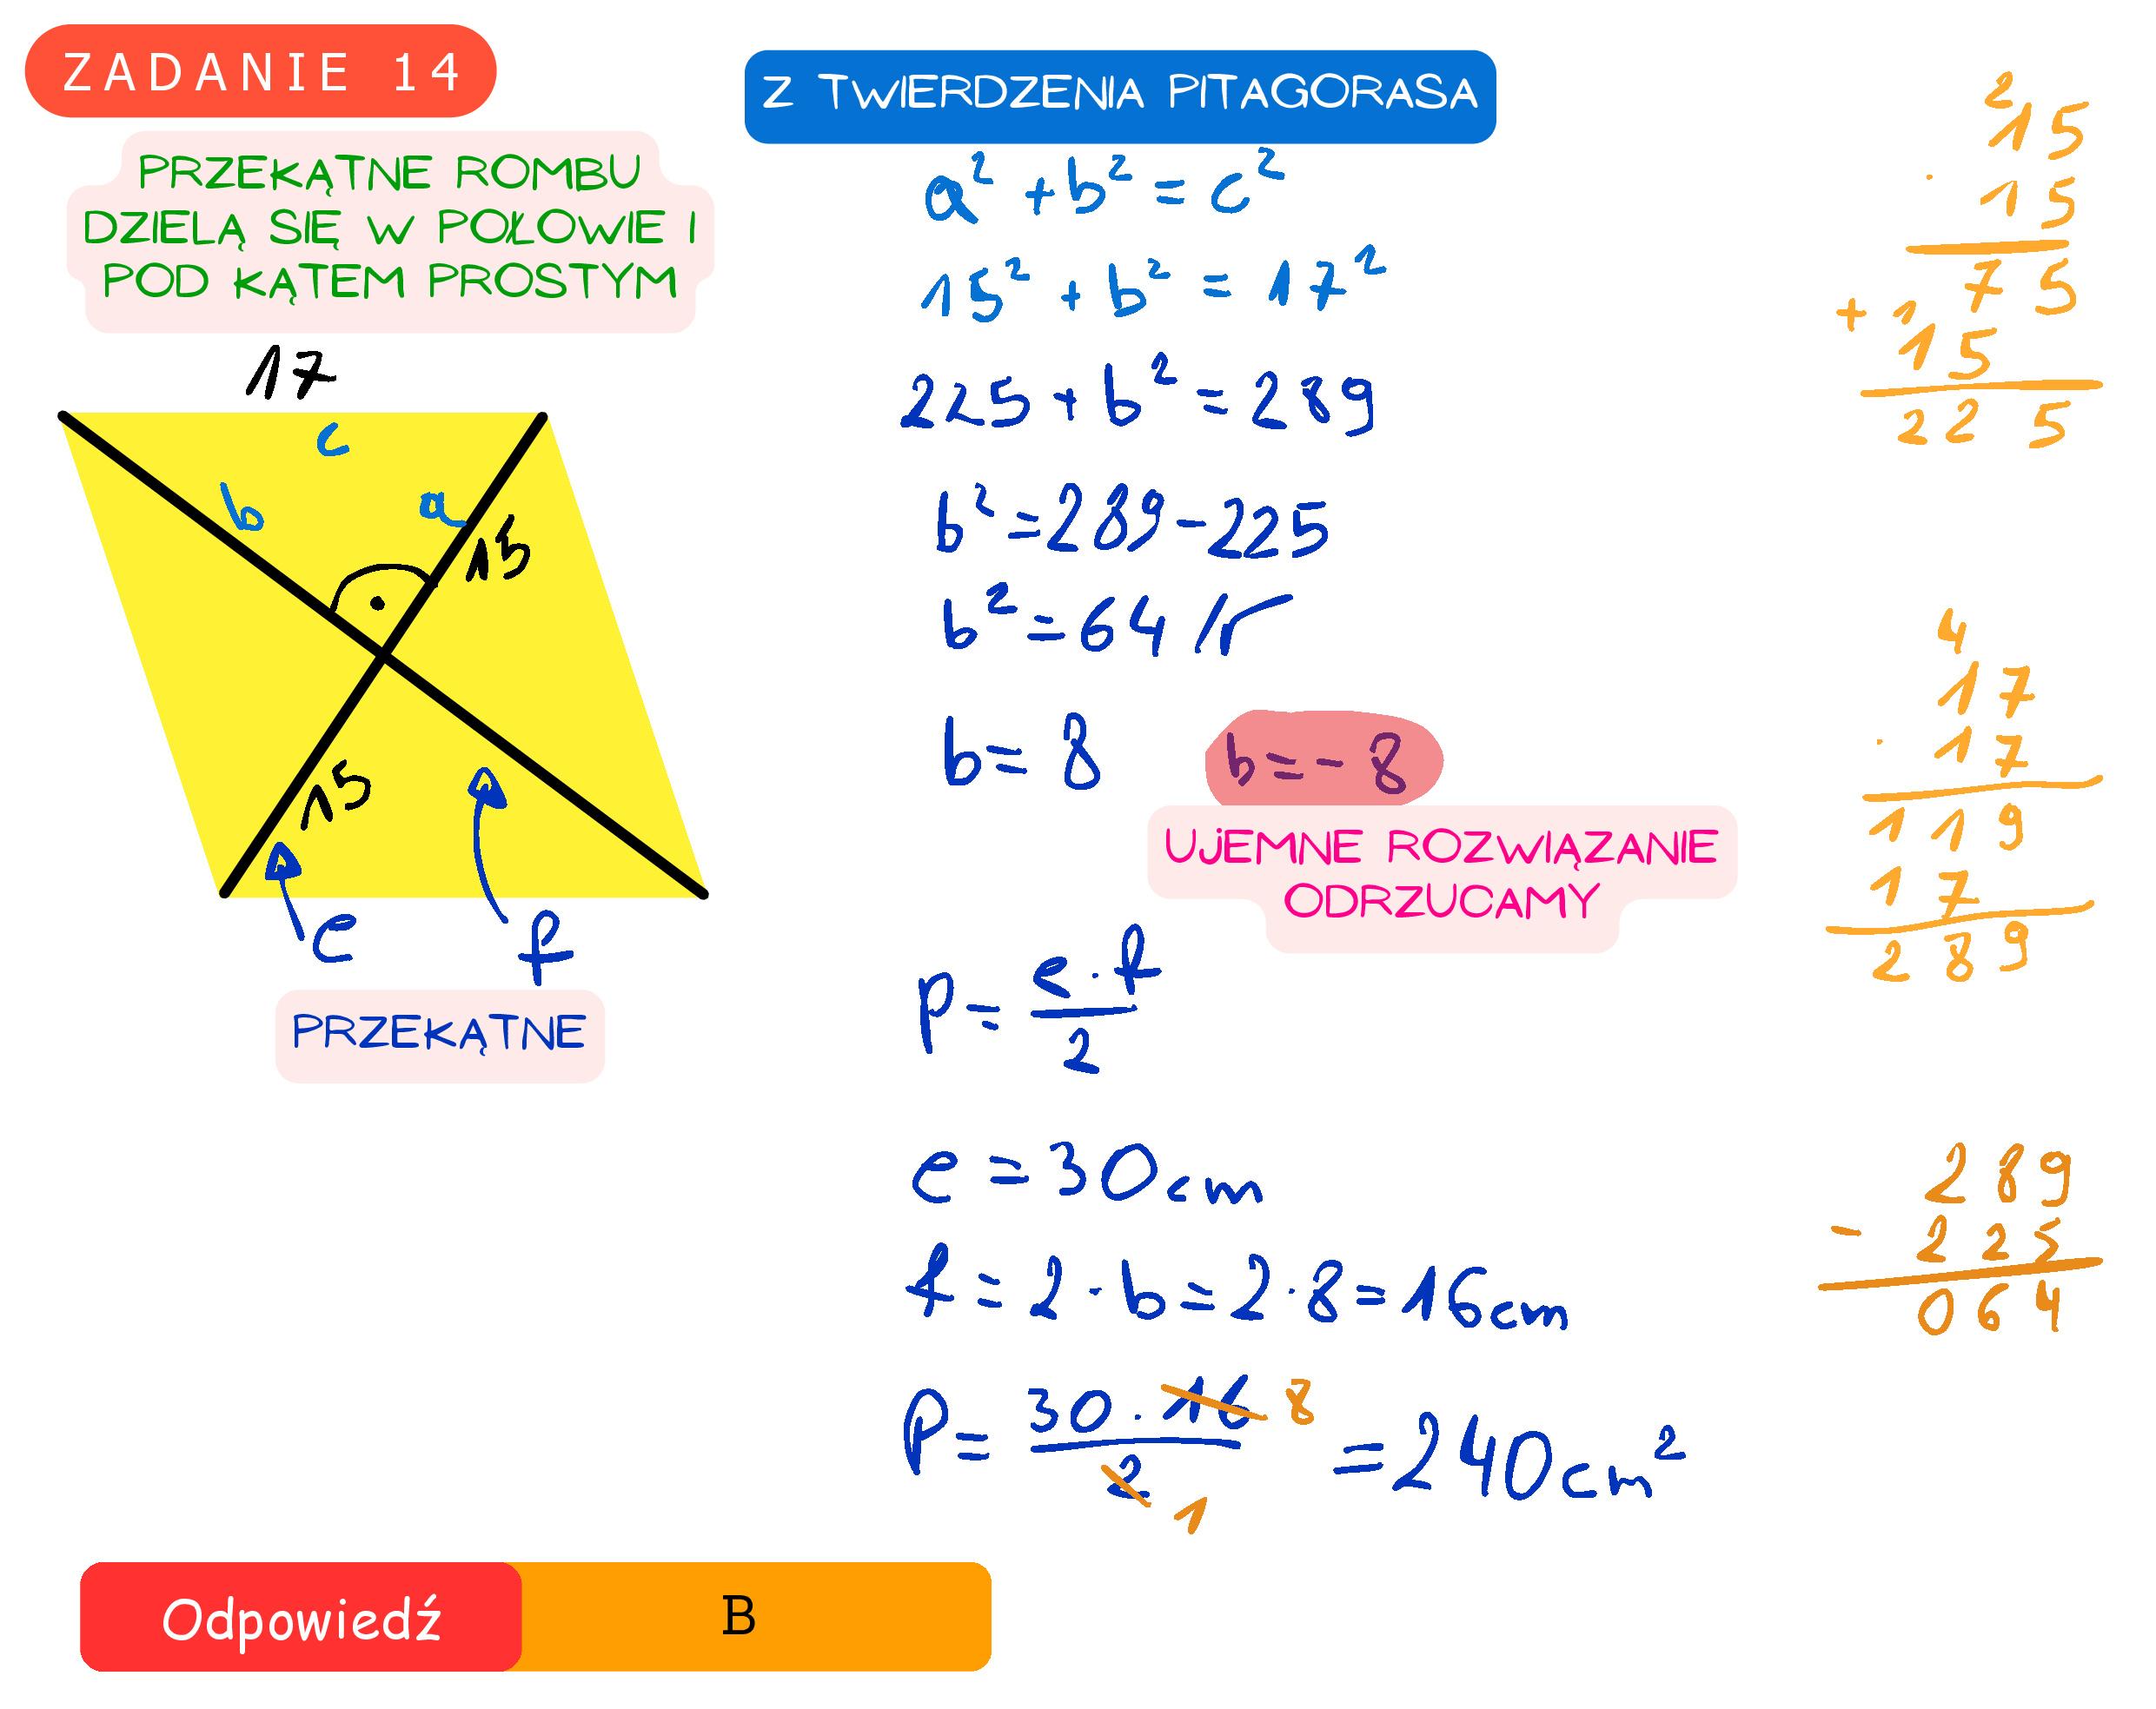 ZADANIE 14
PRZEKĄTNE ROMBU
DZIELĄ SIĘ W POŁOWIE I
POD KĄTEM PROSTYM
17
c
b
a
15
15
e
f
PRZEKĄTNE
Z TWIERDZENIA PITAGORASA
a² + b² = c²
15² + b² = 17²
225 + b² = 289
b² = 289 - 225
b² = 64 /√
b = 8
b = - 8
UJEMNE ROZWIĄZANIE
ODRZUCAMY
P = e · f / 2
e = 30 cm
f = 2 · b = 2 · 8 = 16 cm
P = 30 · 16 8 / 2 1 = 240 cm²
2
15
· 15
75
+ 1 15
225
4
17
· 17
119
17
289
289
- 225
064
Odpowiedź
B